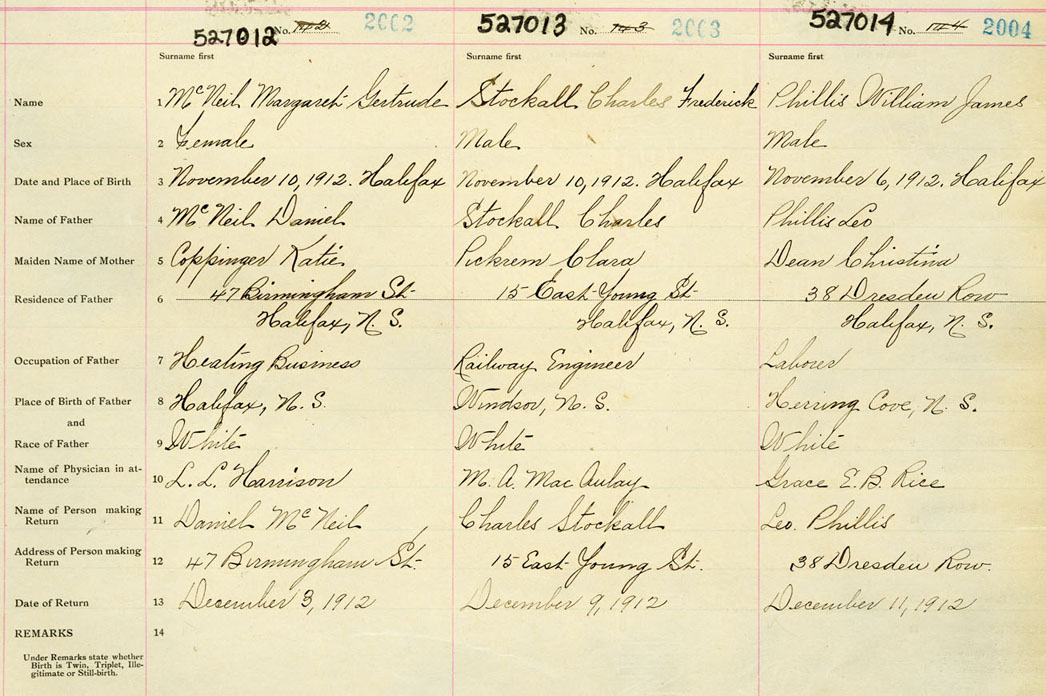 527012 No. 142 2002 527013 No. 143 2003 527014 No. 144 2004
Surname first Surname first Surname first
Name 1 McNeil Margaret Gertrude Stockall Charles Frederick Phillis William James
Sex 2 Female Male Male
Date and Place of Birth 3 November 10, 1912. Halifax November 10, 1912. Halifax November 6, 1912. Halifax
Name of Father 4 McNeil Daniel Stockall Charles Phillis Leo
Maiden Name of Mother 5 Coppinger Katie Pickrem Clara Dean Christina
Residence of Father 6 47 Birmingham St. 15 East Young St 38 Dresden Row
Halifax, N. S. Halifax, N. S. Halifax, N. S.
Occupation of Father 7 Heating Business Railway Engineer Laborer
Place of Birth of Father 8 Halifax, N. S. Windsor, N. S. Herring Cove, N. S.
and
Race of Father 9 White White White
Name of Physician in at-
tendance 10 L. L. Harrison M. A. MacAulay Grace E. B. Rice
Name of Person making
Return 11 Daniel McNeil Charles Stockall Leo. Phillis
Address of Person making
Return 12 47 Birmingham St. 15 East Young St. 38 Dresden Row.
Date of Return 13 December 3, 1912 December 9, 1912 December 11, 1912
REMARKS 14
Under Remarks state whether
Birth is Twin, Triplet, Ille-
gitimate or Still-birth.